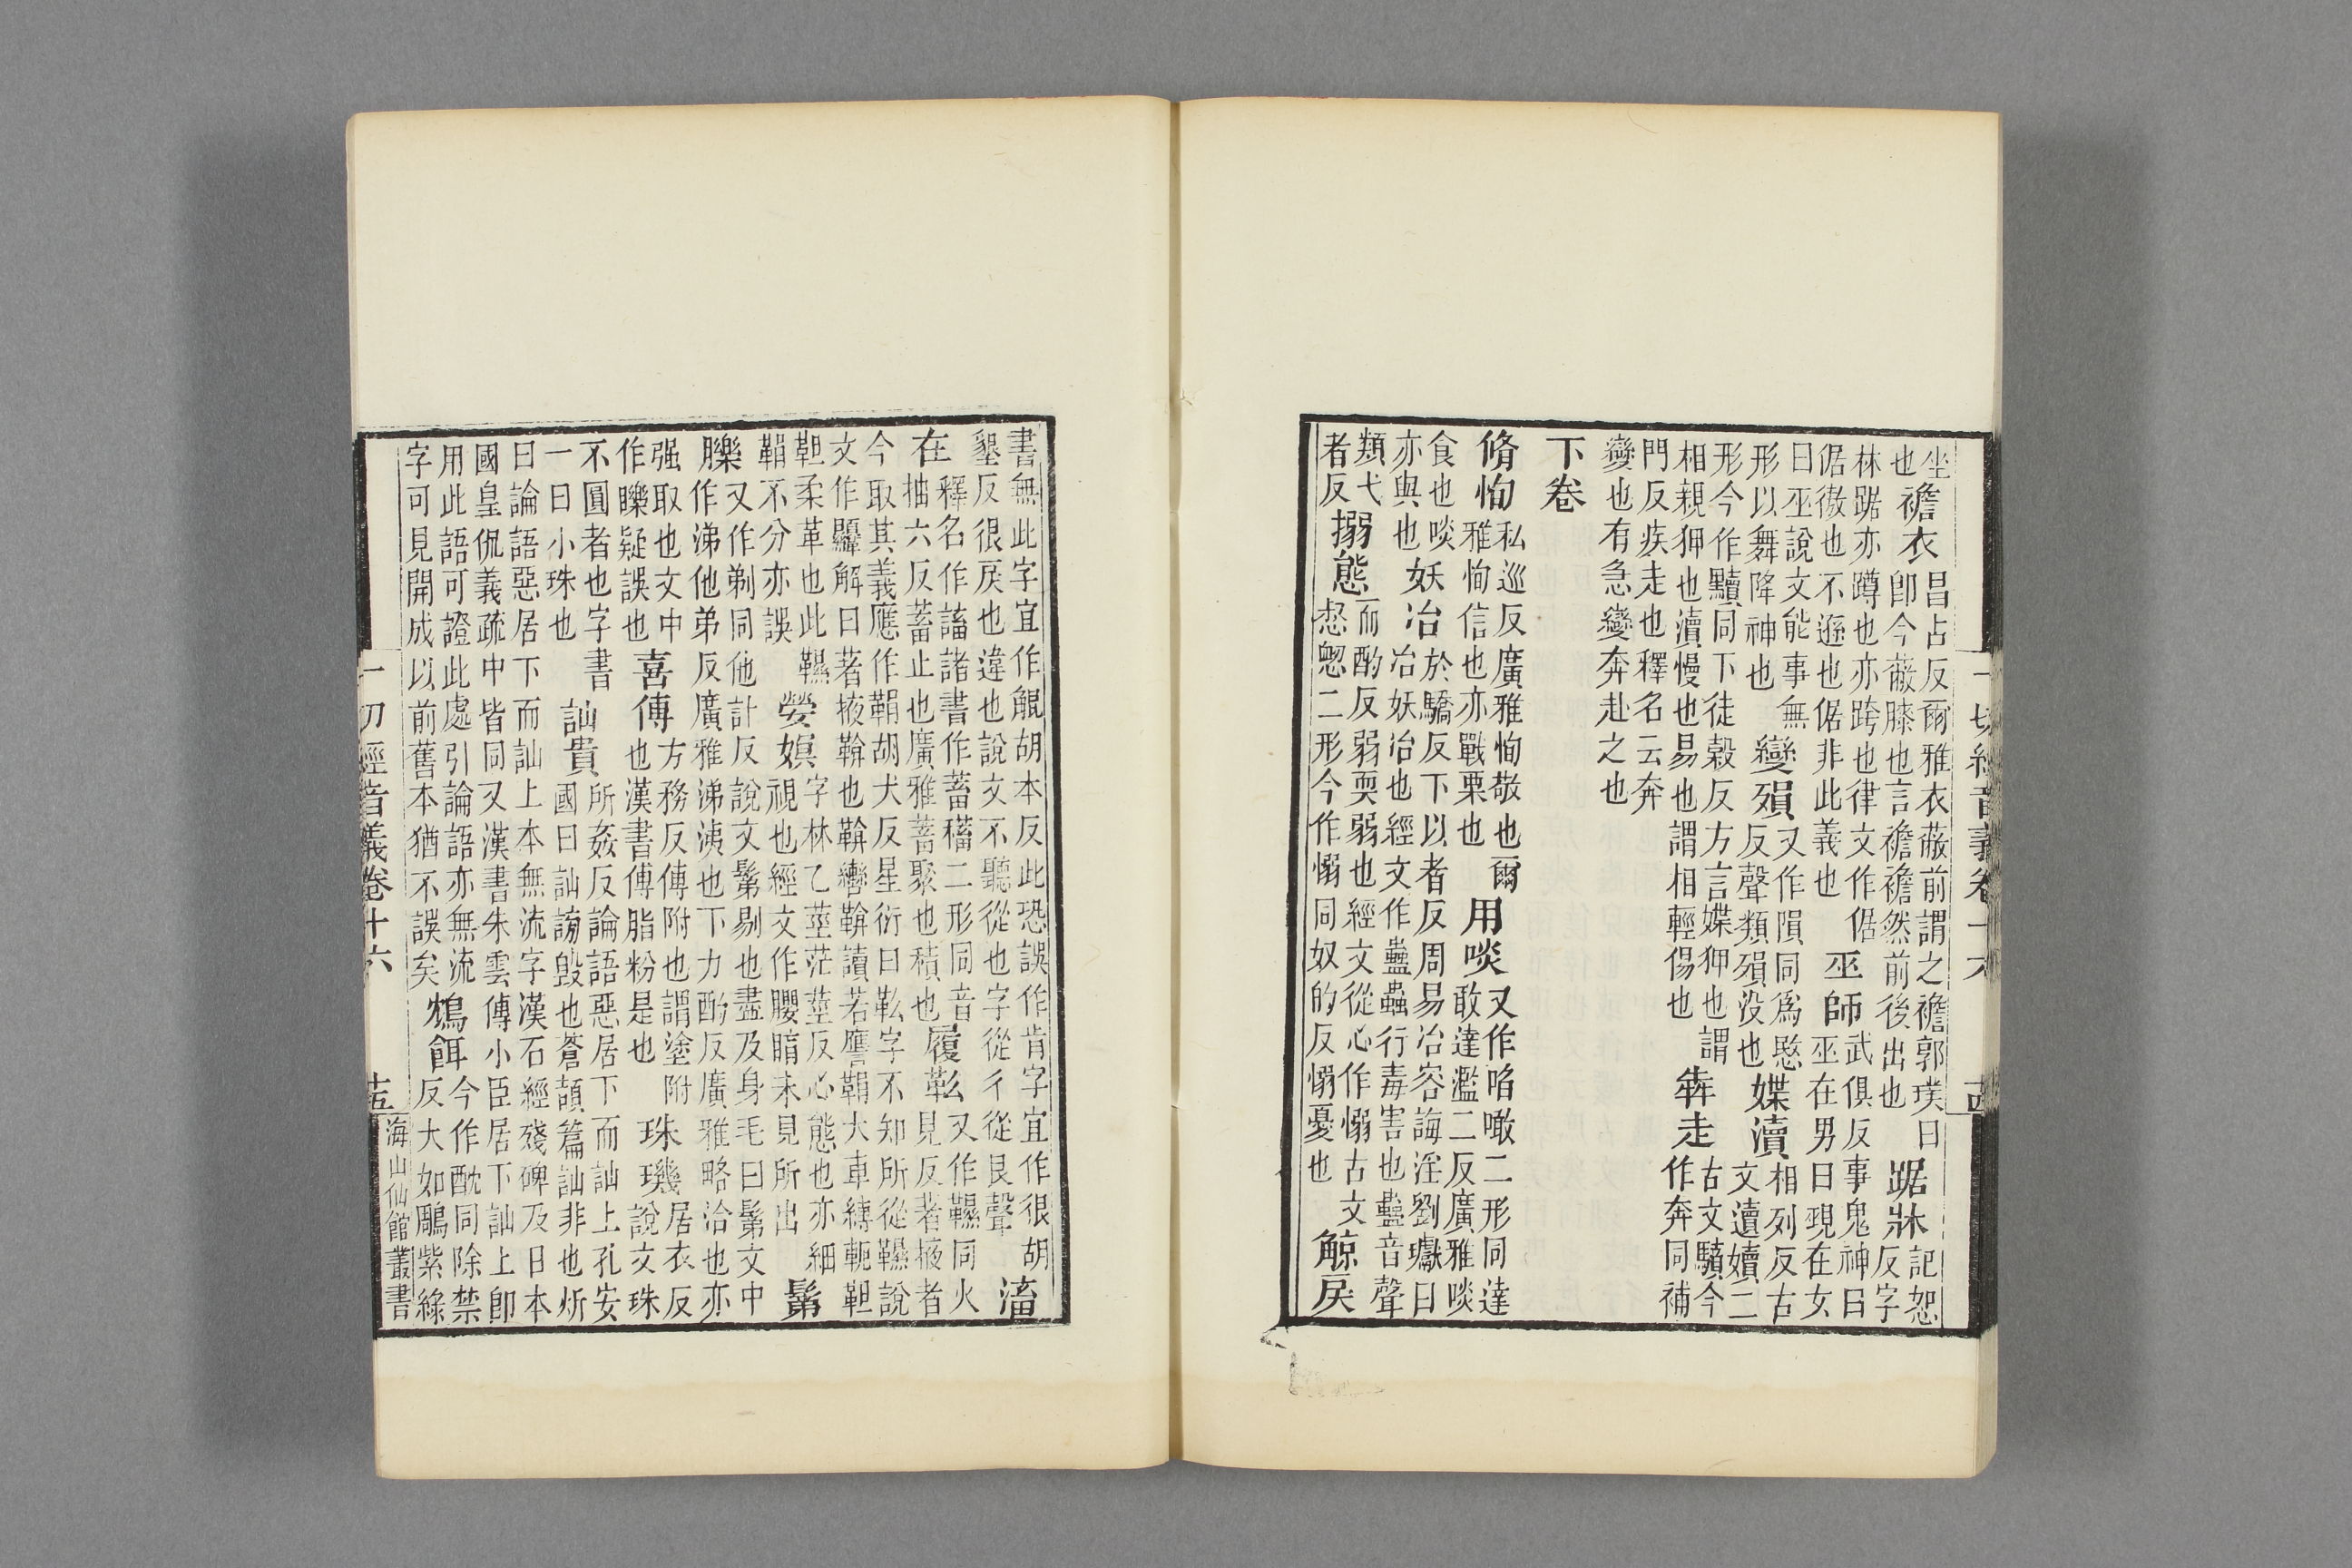 坐
也
襜衣
昌占反爾雅衣蔽前謂之襜郭璞曰
卽今蔽膝也言襜襜然前後出也
踞牀
記恕
反字
林踞亦蹲也亦跨也律文作倨
倨傲也不遜也倨非此義也
巫師
武俱反事鬼神曰
巫在男曰覡在女
曰巫說文能事無
形以舞降神也
變殞
又作隕同爲愍
反聲類殞没也
媟瀆
相列反古
文遺嬻二
形今作黷同下徒穀反方言媟狎也謂
相親狎也瀆慢也易也謂相輕傷也
犇走
古文驞今
作奔同補
門反疾走也釋名云奔
變也有急變奔赴之也
下卷
脩恂
私巡反廣雅恂敬也爾
雅恂信也亦戰栗也
用啖
又作啗噉二形同達
敢達濫二反廣雅啖
食也啖
亦與也
妖冶
於驕反下以者反周易冶容誨淫劉瓛曰
冶妖冶也經文作蠱蟲行毒害也蠱音聲
類弋
者反
搦態
而酌反弱耎弱也經文從心作愵古文
惄愡二形今作愵同奴的反愵憂也
戾
一切經音義卷十六
十四
書無此字宜作胡本反此恐誤作肯字宜作很胡
墾反很戾也違也說文不聽從也字從彳從艮聲
滀
在
釋名作諸書作蓄稸二形同音
抽六反蓄止也廣雅蓄聚也積也
履䩙
又作韅同火
見反著掖者
今取其義應作鞙胡犬反星衍曰䩙字不知所從韅說
文作解曰著掖鞥也鞥轡鞥讀若譍鞙大車縛軛靼
靼柔革也此韅
鞙不分亦誤
嫈嫇
字林乙莖茫莖反心態也亦細
視也經文作未見所出
鬀
又作剃同他計反說文鬀剔也盡及身毛曰鬀文中
作涕他弟反廣雅涕洟也下力酌反廣雅略治也亦
强取也文中
作矋疑誤也
喜傅
方務反傅附也謂塗附
也漢書傅脂粉是也
珠璣
居衣反
說文珠
不圓者也字書
一曰小珠也
訕貴
所姦反論語惡居下而訕上孔安
國曰訕謗毁也蒼頡篇訕非也炘
曰論語惡居下而訕上本無流字漢石經殘碑及日本
國皇侃義疏中皆同又漢書朱雲傳小臣居下訕上卽
用此語可證此處引論語亦無流
字可見開成以前舊本猶不誤矣
鴆餌
今作酖同除禁
反大如鵰紫綠
一切經音義卷十六
十五
海山仙館叢書